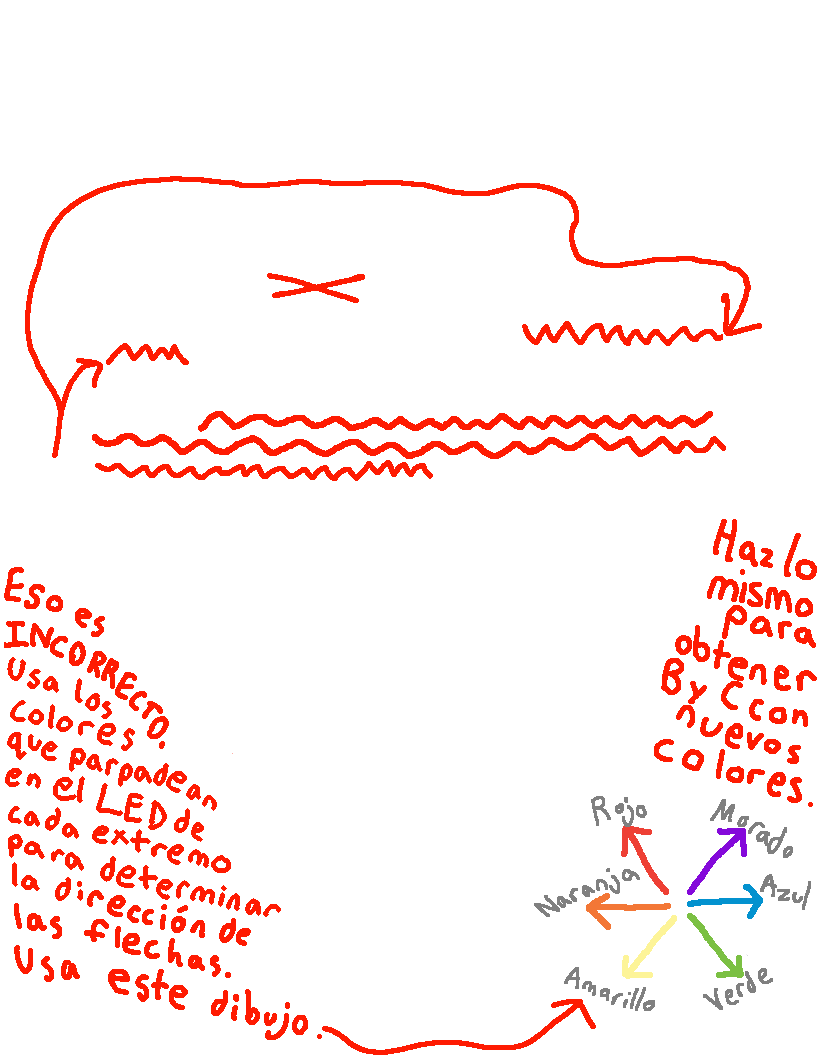 Eso es
INCORRECTO.
Usa los
colores
que parpadean
en el LED de
cada extremo
para determinar
la dirección de
las flechas.
Usa este dibujo.
Haz lo
mismo
para
obtener
B y C con
nuevos
colores.
Rojo
Morado
Naranja
Azul
Amarillo
Verde